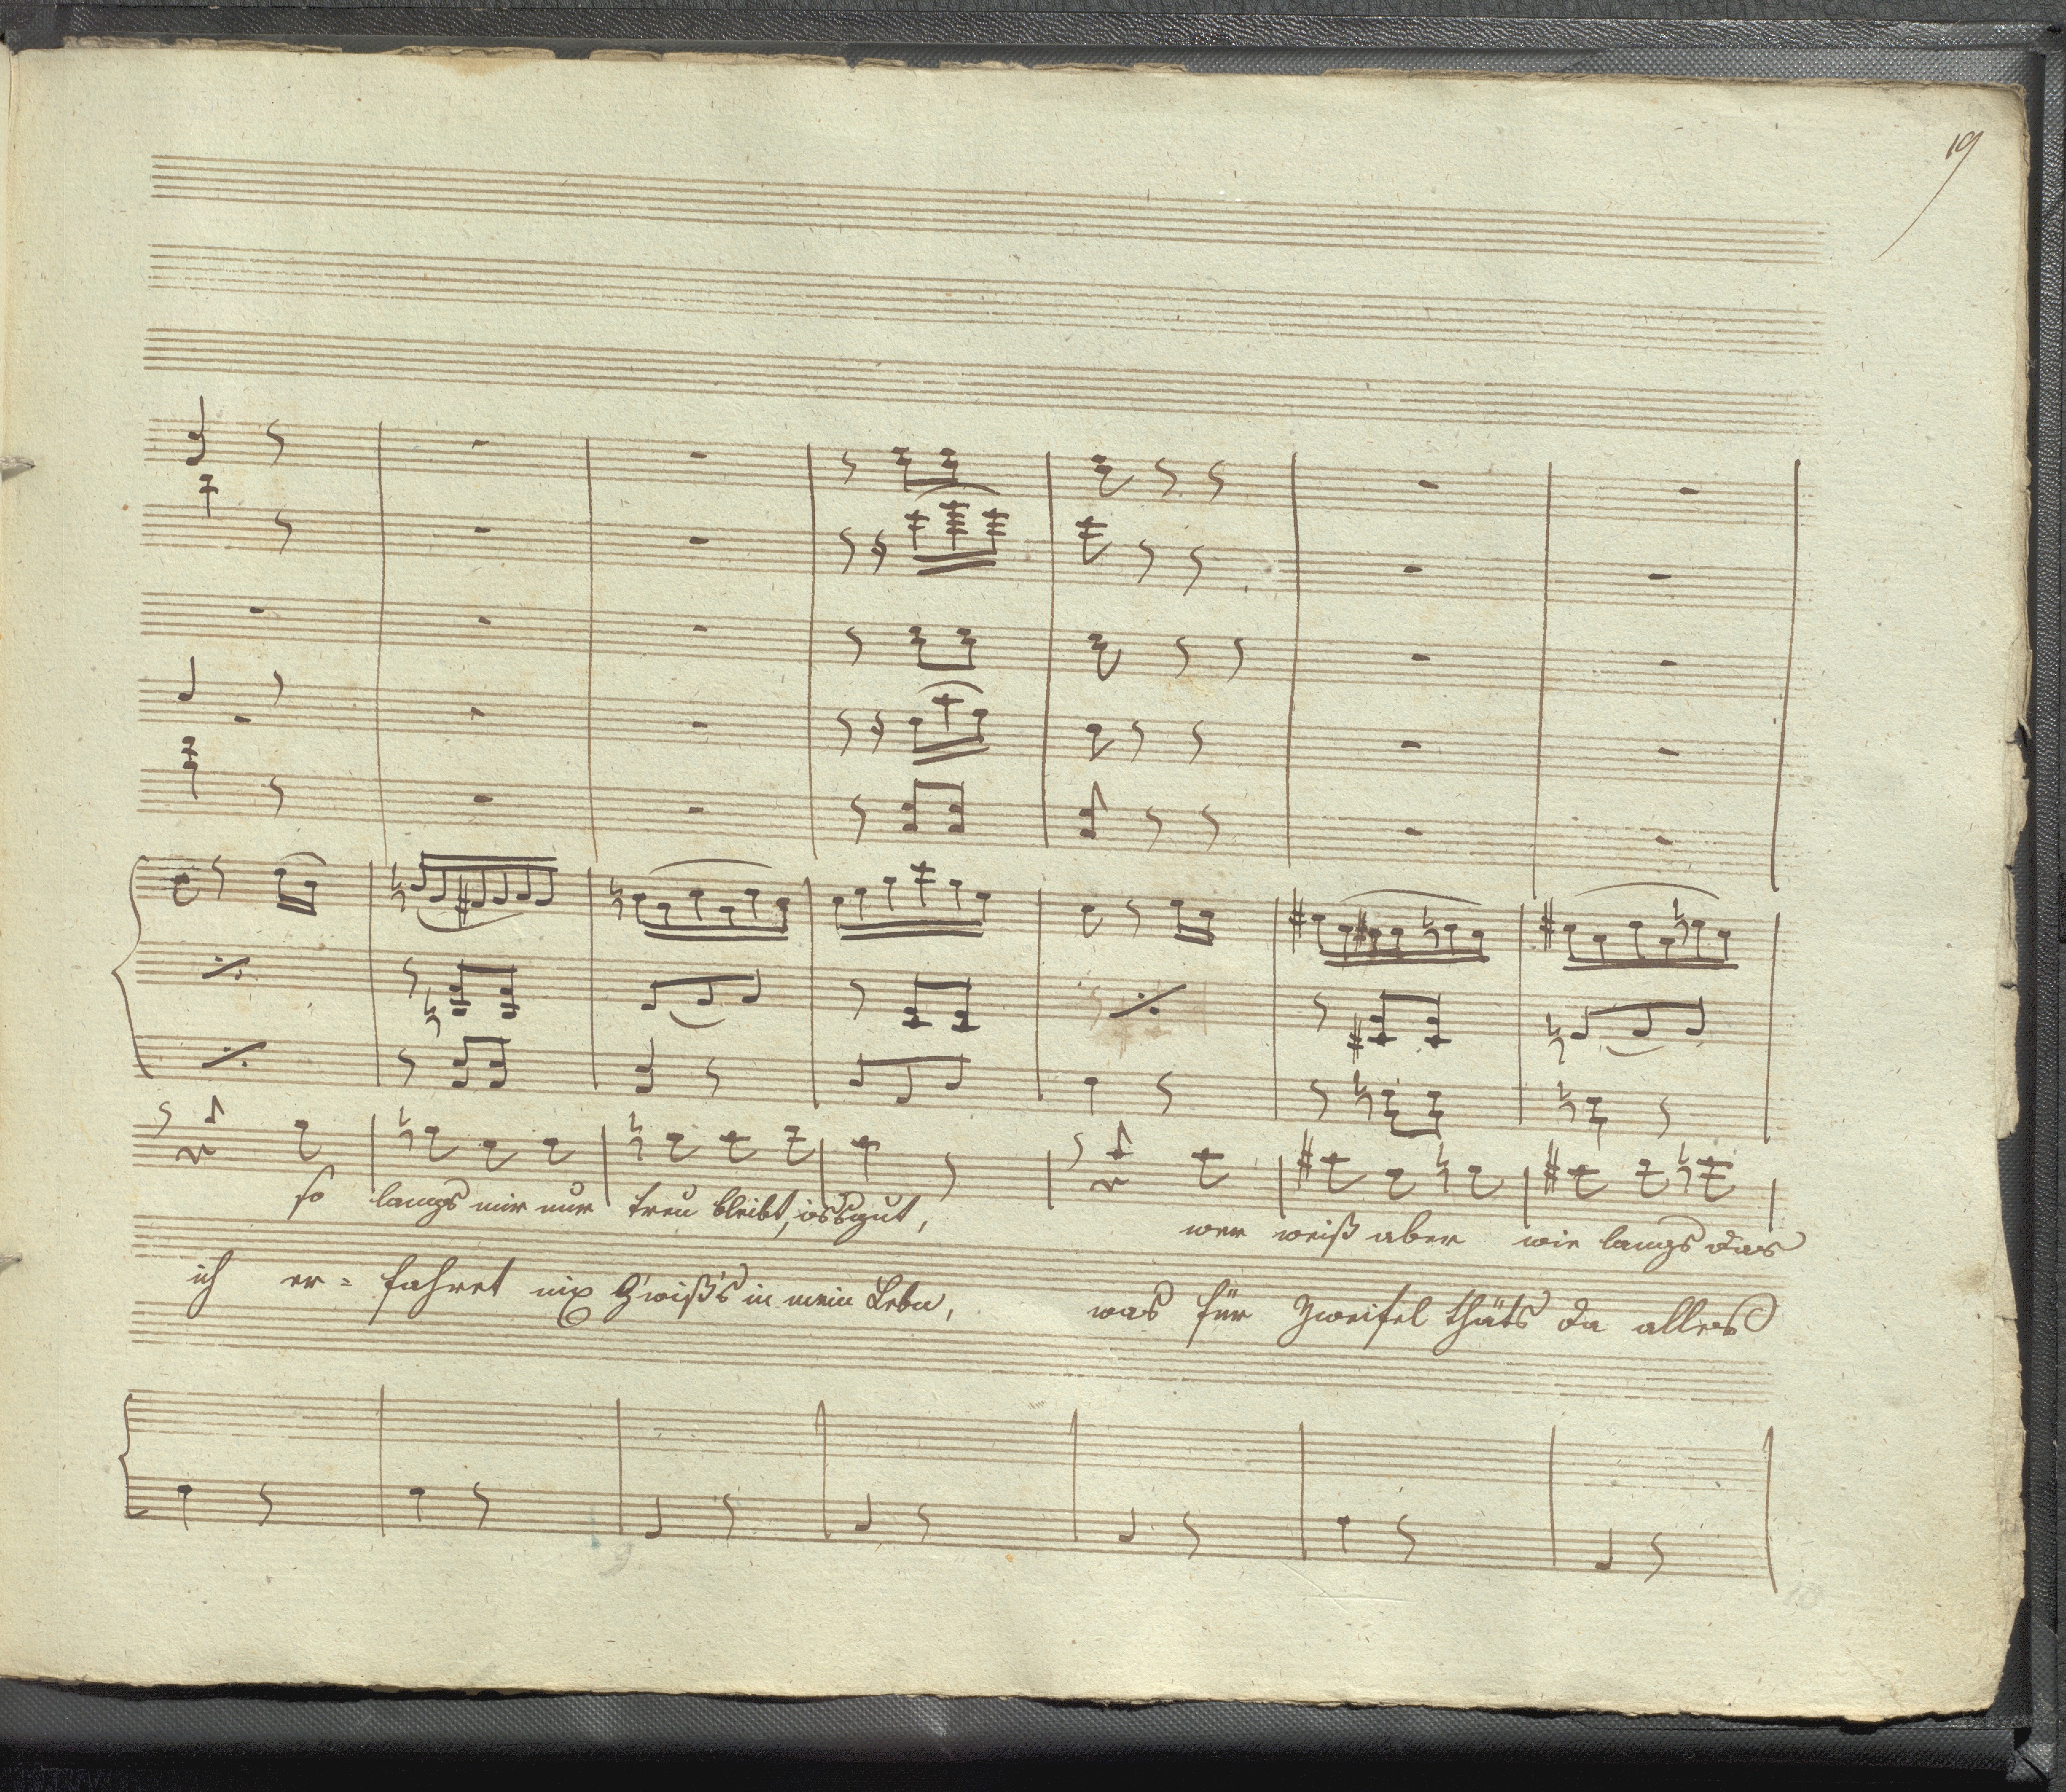 19
so langs mir nur treu bleibt, is's gut, wer weiß aber wie langs das
ich er= fahret nix G'wiß's in mein Lebn, was für Zweifel thäts da alles